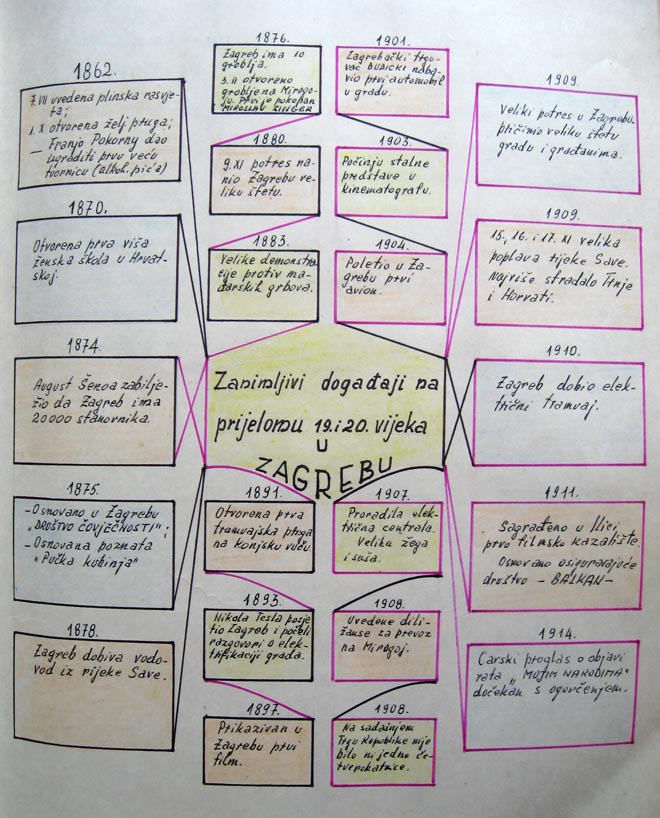 1862.
7. VII uvedena plinska rasvje-
ta;
1. X otvorena želj. pruga;
— Franjo Pokorny dao
ugraditi prvu veću
tvornicu (alkoh. pića)
1870.
Otvorena prva viša
ženska škola u Hrvat-
skoj.
1874.
August Šenoa zabilje-
žio da Zagreb ima
20 000 stanovnika.
1875.
- Osnovano u Zagrebu
"DRUŠTVO ČOVJEČNOSTI";
- Osnovana poznata
"Pučka kuhinja"
1878.
Zagreb dobiva vodo-
vod iz rijeke Save.
1876.
Zagreb ima 10
groblja.
otvoreno
groblje na Mirogo-
ju. Prvi je pokopan
MIROSLAV SINGER
1880.
9. XI potres na-
nio Zagrebu ve-
liku štetu.
1883.
Velike demonstra-
cije protiv ma-
đarskih grbova.
1901.
Zagrebački trgo-
vac BUDICKI naba-
vio prvi automobil
u gradu.
1903.
Počinju stalne
predstave u
kinematografu.
1904.
Poletio u Za-
grebu prvi
avion.
Zanimljivi događaji na
prijelomu 19. i 20. vijeka
U
ZAGREBU
1891.
Otvorena prva
tramvajska pruga
na konjsku vuču.
1893.
Nikola Tesla posje-
tio Zagreb i počeli
razgovori o elek-
trifikaciji grada.
1897.
Prikazivan u
Zagrebu prvi
film.
1907.
Proradila elek-
trična centrala.
Velika žega
i suša.
1908.
Uvedene dili-
žanse za prevoz
na Mirogoj.
1908.
Na sadašnjem
Trgu Republike nije
bilo ni jedne če-
tverokatnice.
1909.
Veliki potres u Zagrebu
pričinio veliku štetu
gradu i građanima.
1909.
15., 16. i 17. XI velika
poplava rijeke Save.
Najviše stradalo Trnje
i Horvati.
1910.
Zagreb dobio elek-
trični tramvaj.
1911.
Sagrađeno u Ilici
prvo filmsko kazalište.
Osnovano osiguravajuće
društvo - BALKAN -
1914.
Carski proglas o objavi
rata "MOJIM NARODIMA"
dočekan s ogorčenjem.